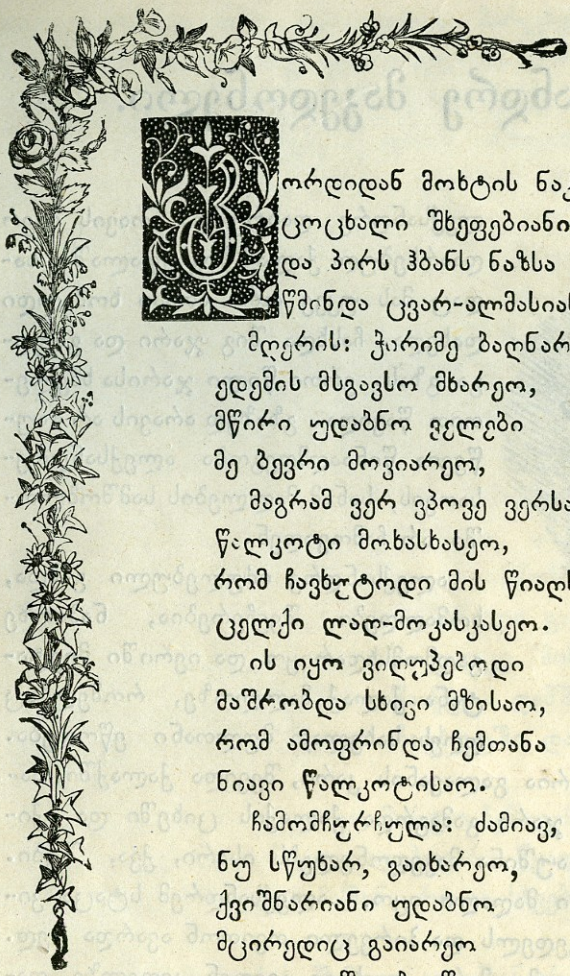 შორდიდან მოხტის
ცოცხალი შხეფებიანი
და პირს ჰბანს ნაზსა
წმინდა ცვარ-ალმასიან
მღერის: ჭირიმე
ედემის მსგავსო მხარეო,
მწირი უდაბნო ველები
მე ბევრი მოვიარეო,
მაგრამ ვერ ვპოვე
წალკოტი მოხასხასეო,
რომ ჩავხუტოდი მის
ცელქი ლაღ-მოკასკასეო.
ის იყო ვიღუპებოდი
მაშრობდა სხივი მზისაო,
რომ ამოფრინდა ჩემთანა
ნიავი წალკოტისაო.
ჩამომჩურჩულა: ძამიავ,
ნუ სწუხარ, გაიხარეო,
ქვიშნარიანი უდაბნო
მცირედიც გაიარეო